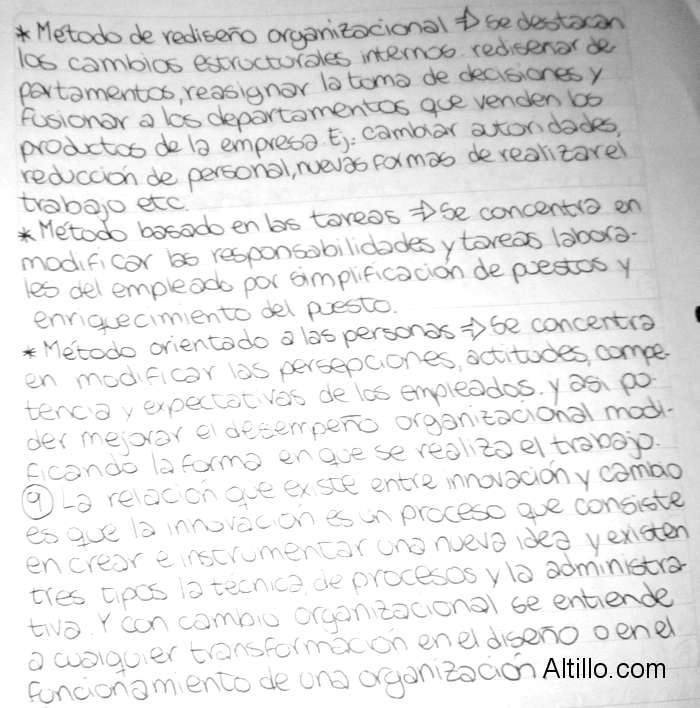 * Metodo de rediseño organizacional ⇒ se destacan
los cambios estructurales internos. rediseñar de-
partamentos, reasignar la toma de decisiones y
fusionar a los departamentos que venden los
productos de la empresa. Ej: cambiar autoridades,
reduccion de personal, nuevas formas de realizar el
trabajo etc.
* Método basado en las tareas ⇒ Se concentra en
modificar las responsabilidades y tareas labora-
les del empleado por simplificacion de puestos y
enriquecimiento del puesto.
* Método orientado a las personas ⇒ Se concentra
en modificar las persepciones, actitudes, compe-
tencia y expectativas de los empleados. y asi po-
der mejorar el desempeño organizacional modi-
ficando la forma en que se realiza el trabajo.
9 La relación que existe entre innovación y cambio
es que la innovación es un proceso que consiste
en crear e instrumentar una nueva idea y existen
tres tipos la técnica, de procesos y la administra-
tiva. Y con cambio organizacional se entiende
a cualquier transformación en el diseño o en el
funcionamiento de una organización
Altillo.com